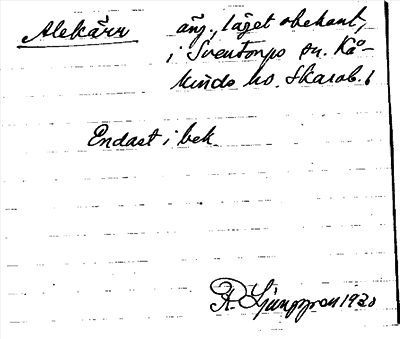 Alekärr äng., läget obekant,
i Sventorps sn. Kå-
kinds hd. Skarab. l
Endast i bek.
R. Ljunggren 1920